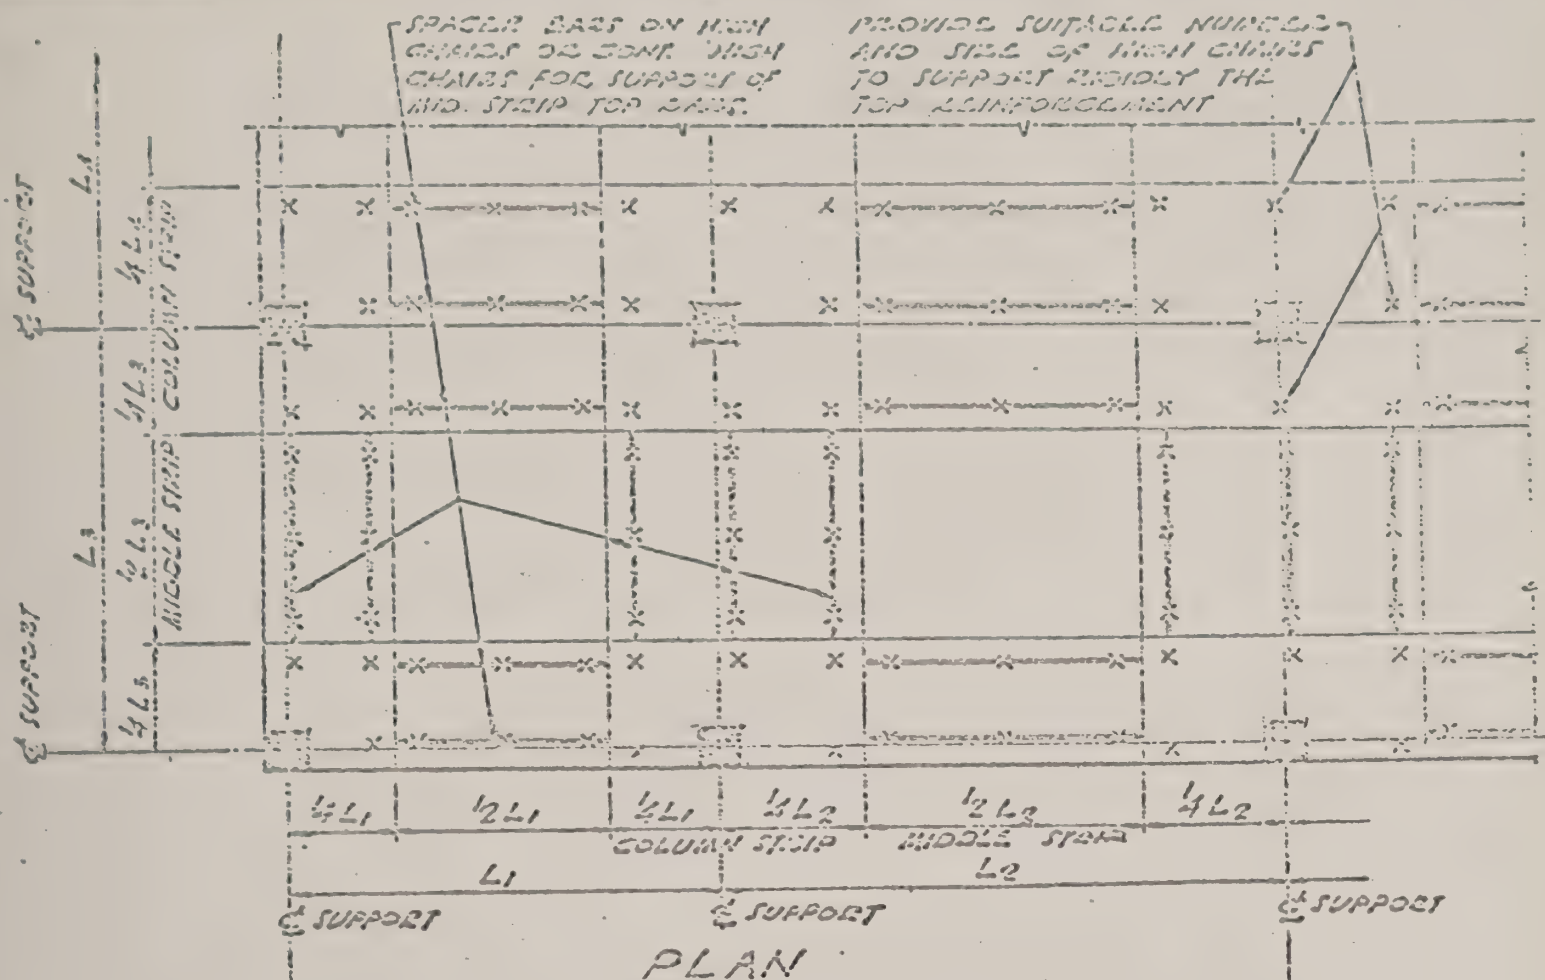 SPACER BARS ON HIGH
CHAIRS OR CONT. HIGH
CHAIRS FOR SUPPORT OF
MID. STRIP TOP BARS.
PROVIDE SUITABLE NUMBER
AND SIZE OF HIGH CHAIRS
TO SUPPORT RIGIDLY THE
TOP REINFORCEMENT
℄ SUPPORT
¼ L3
COLUMN STRIP
L3
½ L3
MIDDLE STRIP
¼ L3
℄ SUPPORT
¼ L1
½ L1
¼ L1
¼ L2
½ L2
¼ L2
COLUMN STRIP
MIDDLE STRIP
L1
L2
℄ SUPPORT
℄ SUPPORT
℄ SUPPORT
PLAN